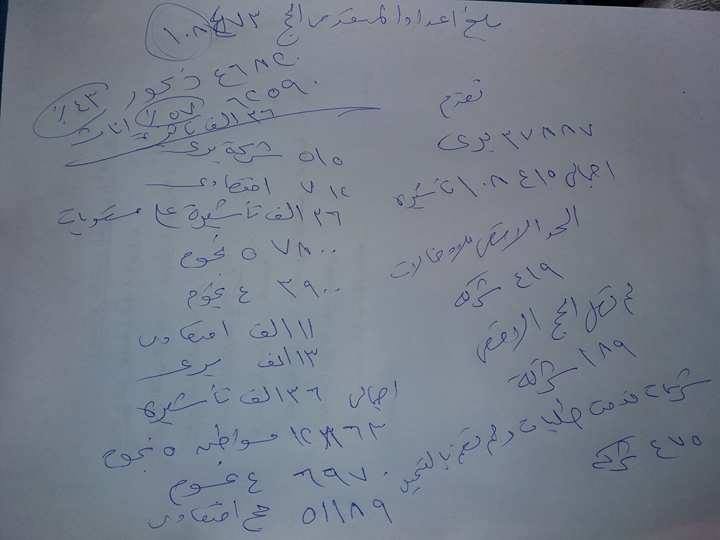 بلغ اعداد المتقدمين الحج ١٠٨٤٧٣
٤٦٨٨٠ ذكور ٤٣٪
٦٢٥٩٠ ٥٧٪ اناث
٣٦ الف تأشيرة
٥١٥ شركة برى
٧١٢ اقتصادى
٣٦ الف تأشيرة على مستويات
٧٨٠٠ ٥ نجوم
٣٩٠٠ ٤ نجوم
١١ الف اقتصادى
١٣ الف برى
اجمالى ٣٦ الف تأشيرة
مواطن ٥ نجوم
٦٩٧٠ ٤ نجوم
٥١١٨٩ حج اقتصادى
تقدم
٣٧٨٨٧ برى
اجمالى ١٠٨٤١٥ تأشيرة
الحد الاقصى للوكالات
٤١٩ شركة
لم تصل الحج الاقصى
١٨٩ شركة
شركات قدمت طلبات ولم تقم بالتسجيل
٤٧٥ شركة